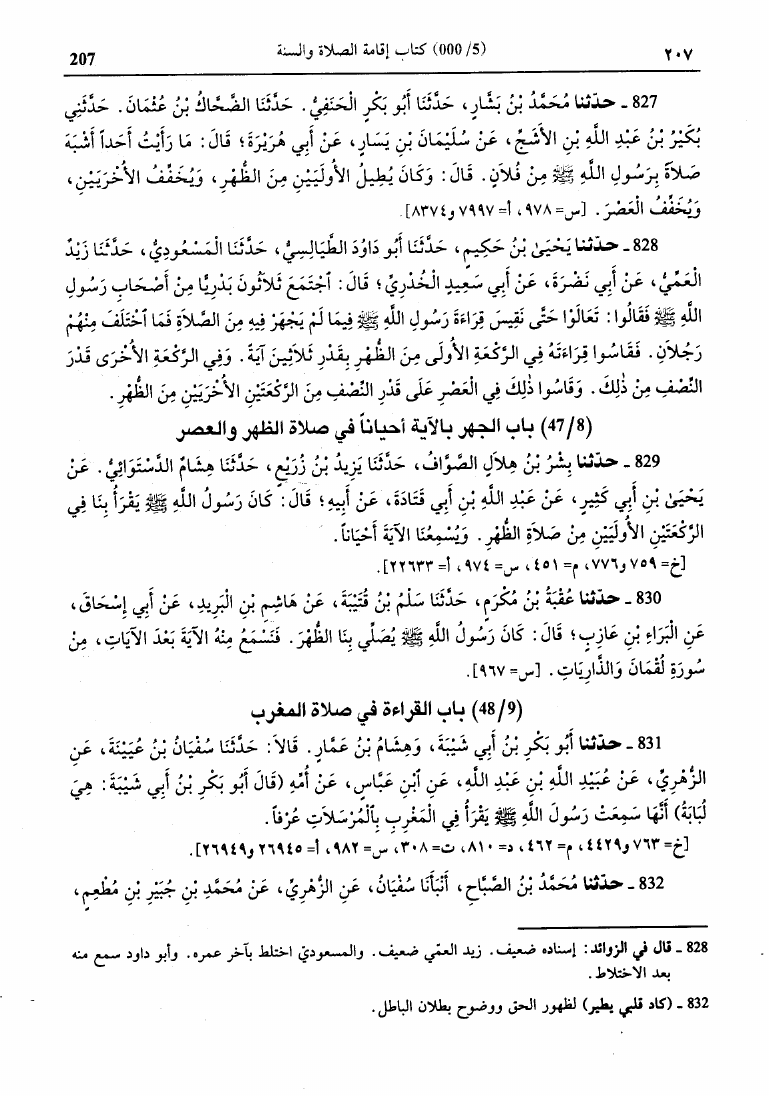 207 (5/ 000) كتاب إقامة الصلاة والسنة ٢٠٧
827 ـ حدّثنا مُحَمَّدُ بْنُ بَشَّارٍ، حَدَّثَنَا أَبُو بَكْرٍ الْحَنَفِيُّ. حَدَّثَنَا الضَّحَّاكُ بْنُ عُثْمَانَ. حَدَّثَنِي
بُكَيْرُ بْنُ عَبْدِ اللَّهِ بْنِ الأَشَجِّ، عَنْ سُلَيْمَانَ بْنِ يَسَارٍ، عَنْ أَبِي هُرَيْرَةَ؛ قَالَ: مَا رَأَيْتُ أَحَداً أَشْبَهَ
صَلاَةً بِرَسُولِ اللَّهِ ﷺ مِنْ فُلاَنٍ. قَالَ: وَكَانَ يُطِيلُ الأُولَيَيْنِ مِنَ الظُّهْرِ، وَيُخَفِّفُ الأُخْرَيَيْنِ،
وَيُخَفِّفُ الْعَصْرَ. [س= ٩٧٨، أ= ٧٩٩٧ و٨٣٧٤].
828 ـ حدّثنا يَحْيَىٰ بْنُ حَكِيمٍ، حَدَّثَنَا أَبُو دَاوُدَ الطَّيَالِسِيُّ، حَدَّثَنَا الْمَسْعُودِيُّ، حَدَّثَنَا زَيْدٌ
الْعَمِّيُّ، عَنْ أَبِي نَضْرَةَ، عَنْ أَبِي سَعِيدٍ الْخُدْرِيِّ؛ قَالَ: ٱجْتَمَعَ ثَلاَثُونَ بَدْرِيًّا مِنْ أَصْحَابِ رَسُولِ
اللَّهِ ﷺ فَقَالُوا: تَعَالَوْا حَتَّى نَقِيسَ قِرَاءَةَ رَسُولِ اللَّهِ ﷺ فِيمَا لَمْ يَجْهَرْ فِيهِ مِنَ الصَّلاَةِ فَمَا ٱخْتَلَفَ مِنْهُمْ
رَجُلاَنِ. فَقَاسُوا قِرَاءَتَهُ فِي الرَّكْعَةِ الأُولَى مِنَ الظُّهْرِ بِقَدْرِ ثَلاَثِينَ آيَةً. وَفِي الرَّكْعَةِ الأُخْرَى قَدْرَ
النِّصْفِ مِنْ ذٰلِكَ. وَقَاسُوا ذٰلِكَ فِي الْعَصْرِ عَلَى قَدْرِ النِّصْفِ مِنَ الرَّكْعَتَيْنِ الأُخْرَيَيْنِ مِنَ الظُّهْرِ.
(47/8) باب الجهر بالآية أحياناً في صلاة الظهر والعصر
829 ـ حدّثنا بِشْرُ بْنُ هِلاَلٍ الصَّوَّافُ، حَدَّثَنَا يَزِيدُ بْنُ زُرَيْعٍ، حَدَّثَنَا هِشَامٌ الدَّسْتَوَائِيُّ. عَنْ
يَحْيَىٰ بْنِ أَبِي كَثِيرٍ، عَنْ عَبْدِ اللَّهِ بْنِ أَبِي قَتَادَةَ، عَنْ أَبِيهِ؛ قَالَ: كَانَ رَسُولُ اللَّهِ ﷺ يَقْرَأُ بِنَا فِي
الرَّكْعَتَيْنِ الأُولَيَيْنِ مِنْ صَلاَةِ الظُّهْرِ. وَيُسْمِعُنَا الآيَةَ أَحْيَاناً.
[خ= ٧٥٩ و٧٧٦، م= ٤٥١، س= ٩٧٤، أ= ٢٢٦٣٣].
830 ـ حدّثنا عُقْبَةُ بْنُ مُكْرَمٍ، حَدَّثَنَا سَلْمُ بْنُ قُتَيْبَةَ، عَنْ هَاشِمِ بْنِ الْبَرِيدِ، عَنْ أَبِي إِسْحَاقَ،
عَنِ الْبَرَاءِ بْنِ عَازِبٍ؛ قَالَ: كَانَ رَسُولُ اللَّهِ ﷺ يُصَلِّي بِنَا الظُّهْرَ. فَنَسْمَعُ مِنْهُ الآيَةَ بَعْدَ الآيَاتِ، مِنْ
سُورَةِ لُقْمَانَ وَالذَّارِيَاتِ. [س= ٩٦٧].
(48/9) باب القراءة في صلاة المغرب
831 ـ حدّثنا أَبُو بَكْرِ بْنُ أَبِي شَيْبَةَ، وَهِشَامُ بْنُ عَمَّارٍ. قَالاَ: حَدَّثَنَا سُفْيَانُ بْنُ عُيَيْنَةَ، عَنِ
الزُّهْرِيِّ، عَنْ عُبَيْدِ اللَّهِ بْنِ عَبْدِ اللَّهِ، عَنِ ٱبْنِ عَبَّاسٍ، عَنْ أُمِّهِ (قَالَ أَبُو بَكْرِ بْنُ أَبِي شَيْبَةَ: هِيَ
لُبَابَةُ) أَنَّهَا سَمِعَتْ رَسُولَ اللَّهِ ﷺ يَقْرَأُ فِي الْمَغْرِبِ بِٱلْمُرْسَلاَتِ عُرْفاً.
[خ= ٧٦٣ و٤٤٢٩، م= ٤٦٢، د= ٨١٠، ت= ٣٠٨، س= ٩٨٢، أ= ٢٦٩٤٥ و٢٦٩٤٩].
832 ـ حدّثنا مُحَمَّدُ بْنُ الصَّبَّاحِ، أَنْبَأَنَا سُفْيَانُ، عَنِ الزُّهْرِيِّ، عَنْ مُحَمَّدِ بْنِ جُبَيْرِ بْنِ مُطْعِمٍ،
828 ـ قال في الزوائد: إسناده ضعيف. زيد العمّي ضعيف. والمسعوديّ اختلط بآخر عمره. وأبو داود سمع منه
بعد الاختلاط.
832 ـ (كاد قلبي يطير) لظهور الحق ووضوح بطلان الباطل.